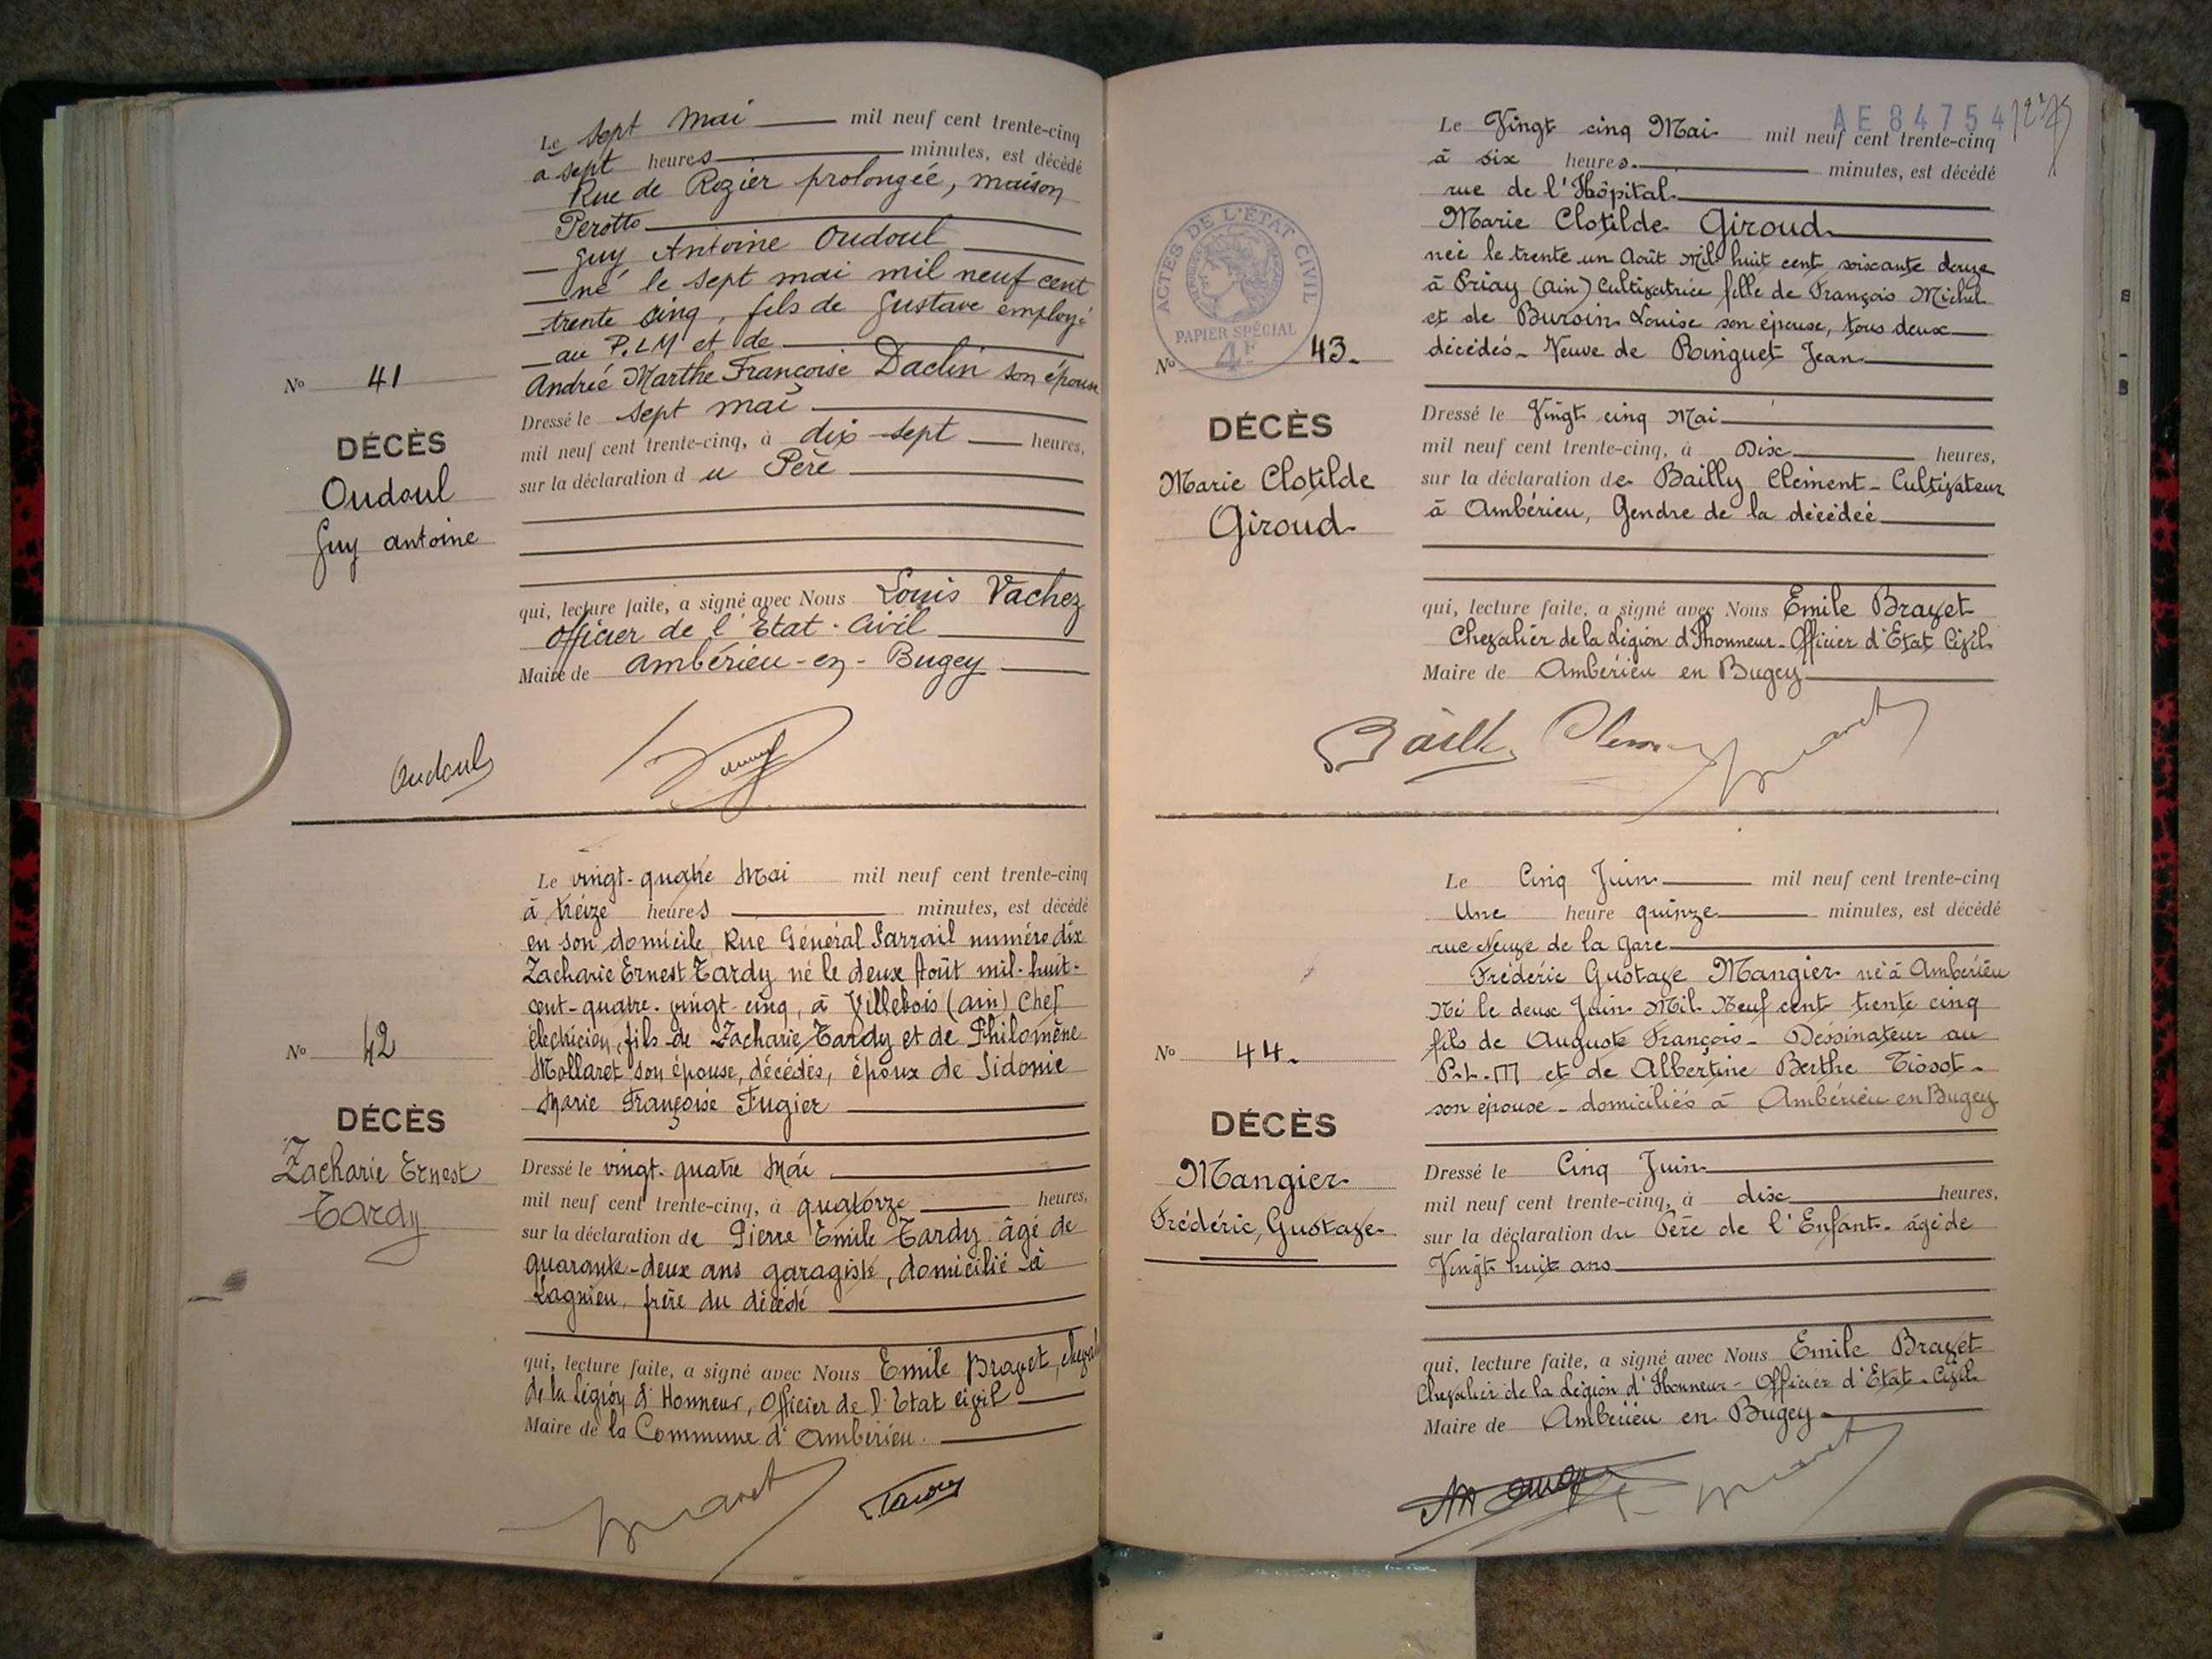 Le sept mai mil neuf cent trente-cinq
à sept heures minutes, est décédé
Rue de Rozier prolongée, maison
Perotto
Guy Antoine Oudoul
né le sept mai mil neuf cent
trente cinq, fils de Gustave employé
au P.LM et de
Andrée Marthe Françoise Daclin son épouse
No 41
DÉCÈS
Oudoul
Guy antoine
Dressé le sept mai
mil neuf cent trente-cinq, à dix-sept heures,
sur la déclaration du Père
qui, lecture faite, a signé avec Nous Louis Vachez
officier de l'Etat-Civil
Maire de Ambérieu-en-Bugey
Oudoul
Le vingt-quatre Mai mil neuf cent trente-cinq
à treize heures minutes, est décédé
en son domicile, Rue Général Sarrail numéro dix
Zacharie Ernest Tardy né le deux Août mil-huit-
cent-quatre-vingt-cinq, à Villebois (ain) Chef
électricien, fils de Zacharie Tardy et de Philomène
Mollaret son épouse, décédés, époux de Sidonie
Marie Françoise Fugier
No 42
DÉCÈS
Zacharie Ernest
Tardy
Dressé le vingt-quatre Mai
mil neuf cent trente-cinq, à quatorze heures,
sur la déclaration de Pierre Emile Tardy âgé de
quarante-deux ans garagiste, domicilié à
Lagnieu, frère du décédé
qui, lecture faite, a signé avec Nous Emile Bravet,
de la Légion d'Honneur, Officier de l'Etat civil
Maire de la Commune d'Ambérieu.
Bravet
Tardy
AE 84754
Le Vingt cinq Mai mil neuf cent trente-cinq
à six heures. minutes, est décédé
rue de l'Hôpital
Marie Clotilde Giroud
née le trente un Août Mil huit cent soixante douze
à Priay (Ain) Cultivatrice fille de François Michel
et de Buroin Louise son épouse, tous deux
décédés - Veuve de Ringuet Jean
ACTES DE L'ÉTAT CIVIL
PAPIER SPÉCIAL
4F
No 43.
DÉCÈS
Marie Clotilde
Giroud
Dressé le Vingt cinq Mai
mil neuf cent trente-cinq, à Dix heures,
sur la déclaration de Bailly Clément - Cultivateur
à Ambérieu, Gendre de la décédée
qui, lecture faite, a signé avec Nous Emile Bravet
Chevalier de la Légion d'Honneur - Officier d'Etat Civil
Maire de Ambérieu en Bugey
Bailly Clément Bravet
Le Cinq Juin mil neuf cent trente-cinq
Une heure quinze minutes, est décédé
rue Neuve de la Gare
Frédéric Gustave Mangier né à Ambérieu
Né le deux Juin Mil Neuf cent trente cinq
fils de Auguste François - Dessinateur au
P.L.M et de Albertine Berthe Tissot -
son épouse - domiciliés à Ambérieu en Bugey
No 44.
DÉCÈS
Mangier
Frédéric, Gustave
Dressé le Cinq Juin
mil neuf cent trente-cinq, à dix heures,
sur la déclaration du Père de l'Enfant - âgé de
Vingt huit ans
qui, lecture faite, a signé avec Nous Emile Bravet
Chevalier de la Légion d'Honneur - Officier d'Etat-Civil
Maire de Ambérieu en Bugey
Bravet